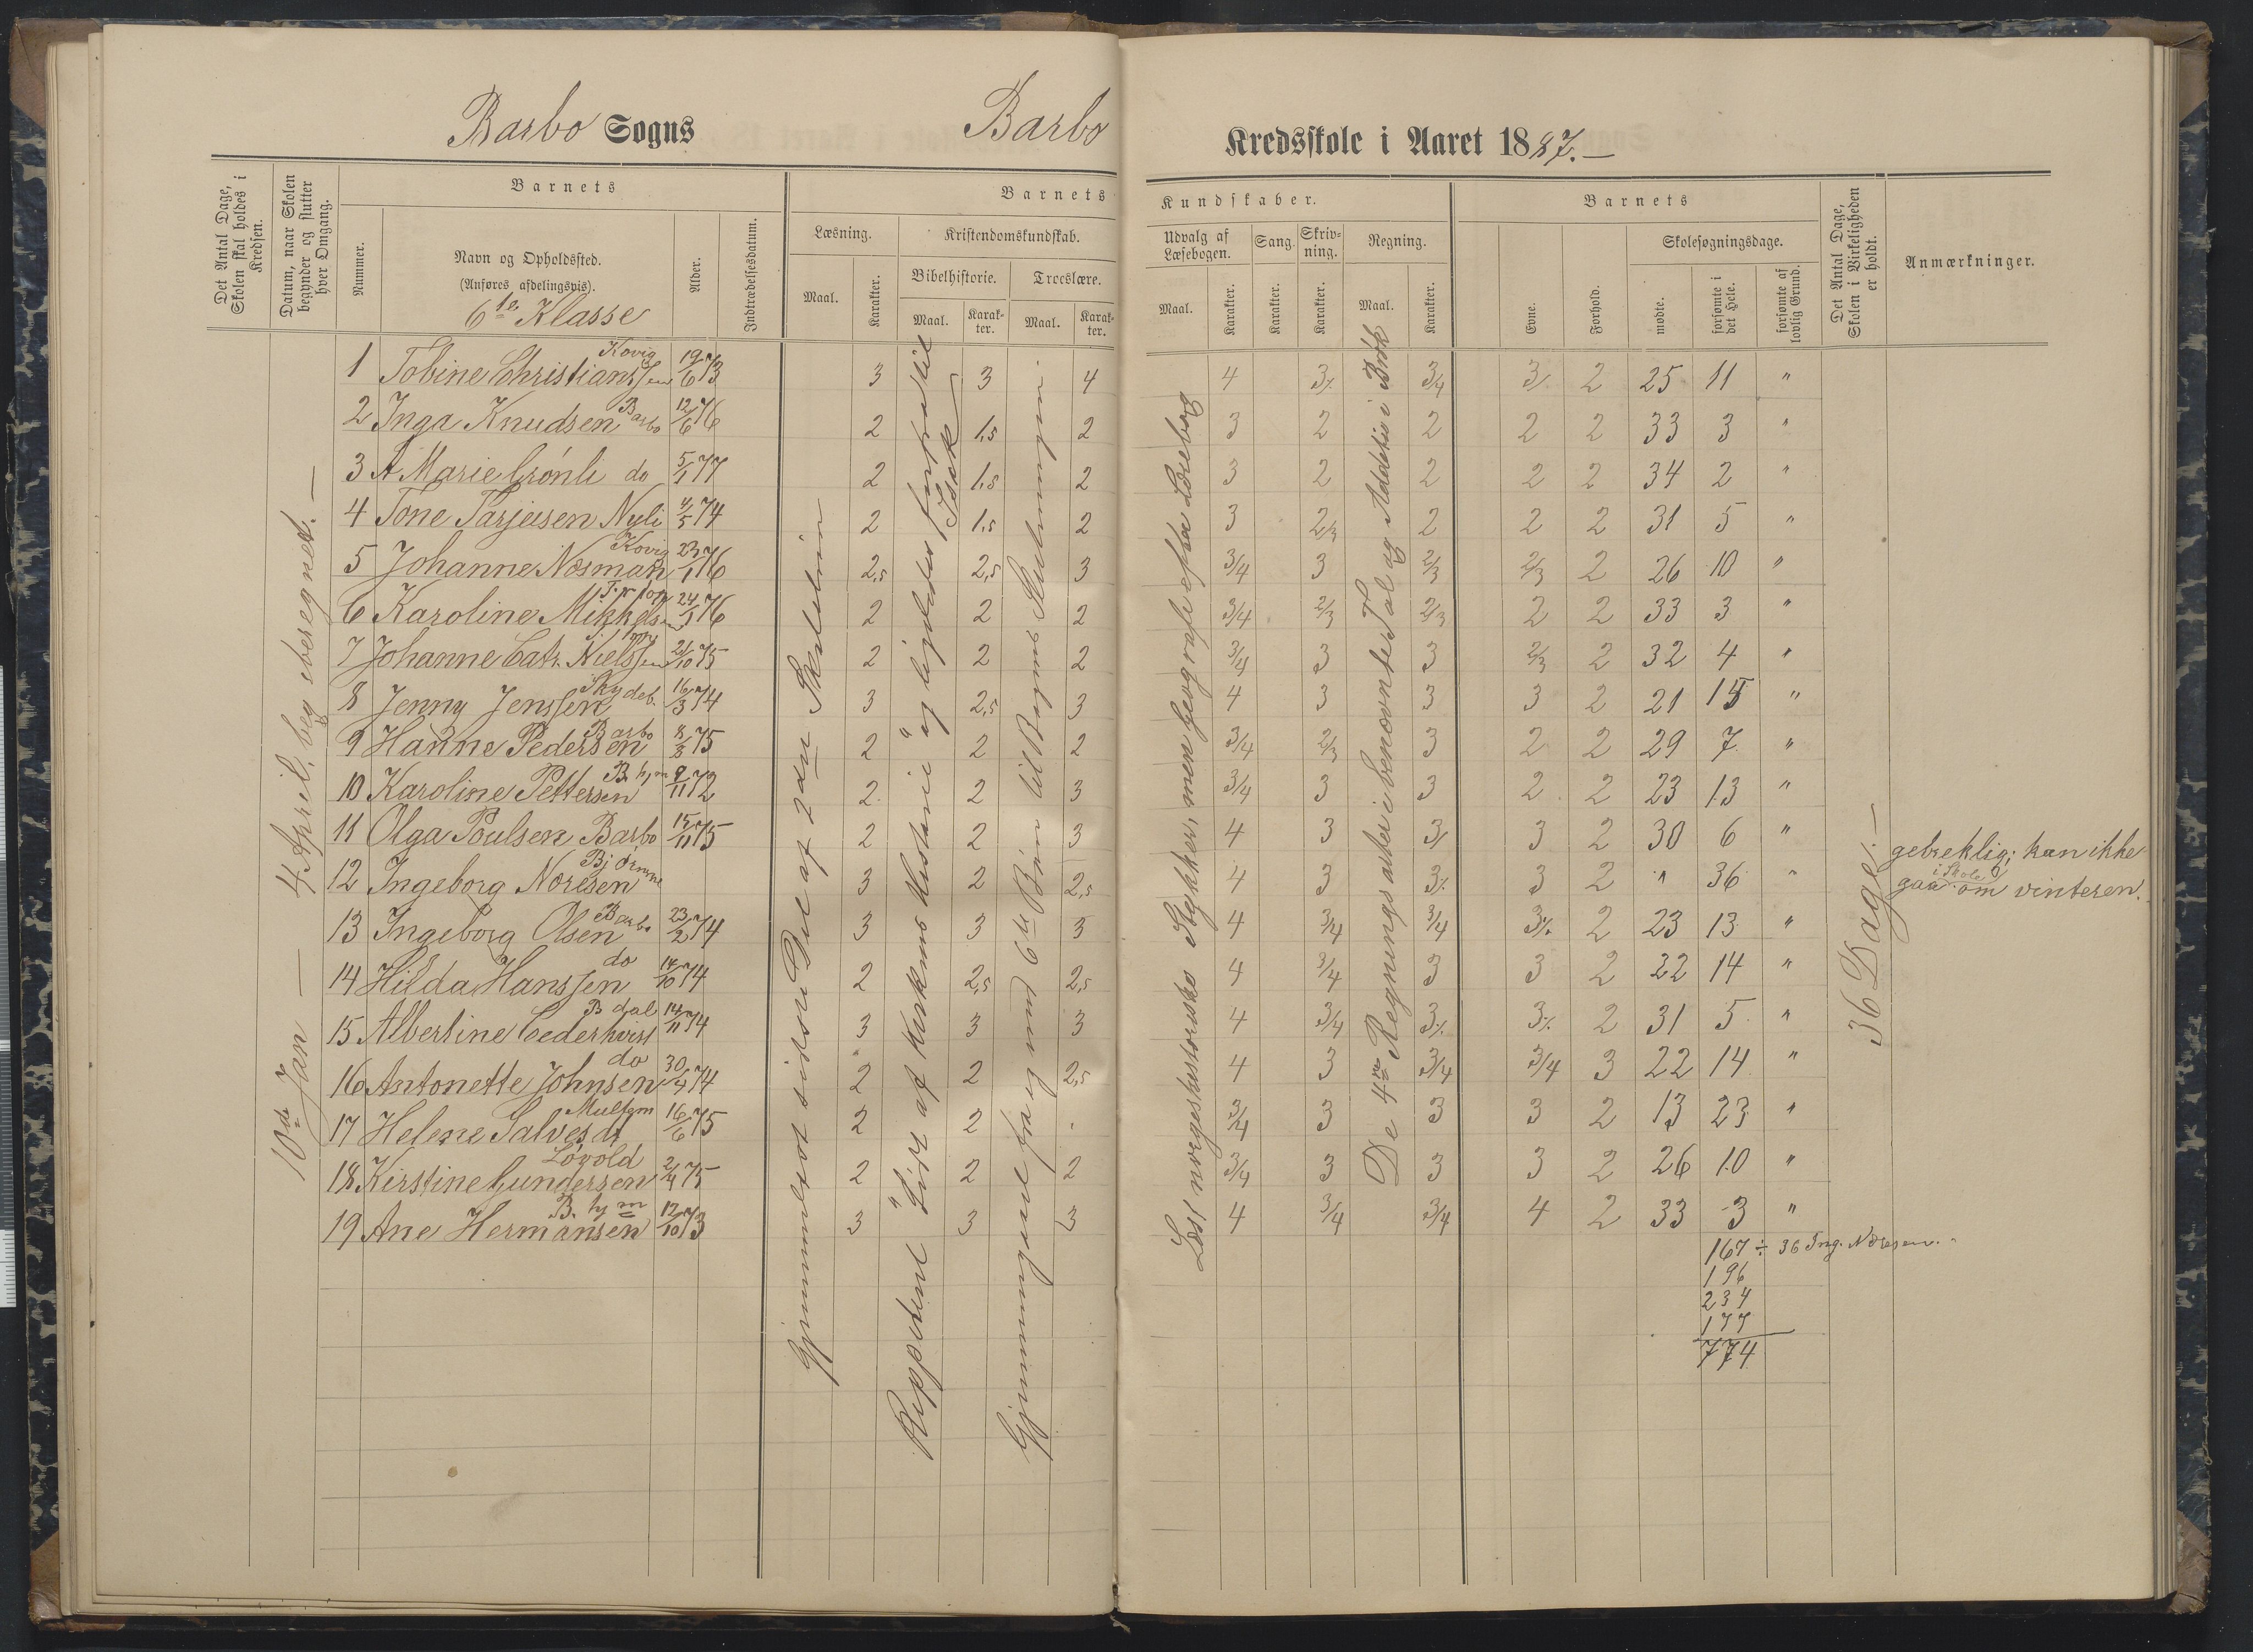 Barbo Sogns Barbo Kredsskole i Aaret 1887.—
Det Antal Dage, Skolen skal holdes i Kredsen.
Datum, naar Skolen begynder og slutter hver Omgang.
Barnets
Nummer.
Navn og Opholdssted.
(Anføres afdelingsvis).
6te Klasse
Alder.
Indtrædelsesdatum.
Barnets Kundskaber.
Læsning.
Maal. Karakter.
Kristendomskundskab.
Bibelhistorie. Troeslære.
Maal. Karakter. Maal. Karakter.
Udvalg af Læsebogen.
Maal. Karakter.
Sang.
Karakter.
Skrivning.
Karakter.
Regning.
Maal. Karakter.
Barnets
Evne. Forhold.
Skolesøgningsdage.
mødte. forsømte i det Hele. forsømte af lovlig Grund.
Det Antal Dage, Skolen i Virkeligheden er holdt.
Anmærkninger.
10de Jan — 4 April, beg iberegnet. —
1 Tobine Christianssen Kovig 19/6 73 3 3 4 4 3% 3/4 3/ 2 25 11 "
2 Inga Knudsen Barbo 12/6 76 2 1,5 2 3 2 2 2 2 33 3 "
3 A Marie Grönli do 5/1 77 2 1,5 2 3 2 2 2 2 34 2 "
4 Tone Tarjeisen Nyli 4/5 74 2 1,5 2 3 2/3 2 2 2 31 5 "
5 Johanne Nosman Kovig 23/1 76 2,5 2,5 3 3/4 3 2/3 2/3 2 26 10 "
6 Karoline Mikkelsen 24/5 76 2 2 2 3/4 2/3 2/3 2 2 33 3 "
7 Johanne Cath. Nielssen 21/10 75 2 2 2 3/4 3 3 2/3 2 32 4 "
8 Jenny Jenssen Skydeb. 16/3 74 3 2,5 3 4 3 3 3 2 21 15 "
9 Hanne Pedersen Barbo 8/8 75 2 2 2 3/4 2/3 3 2 2 29 7 "
10 Karoline Pettersen B. hjm 9/11 72 2 2 3 3/4 3 3 2 2 23 13 "
11 Olga Poulsen Barbo 15/11 75 2 2 3 4 3 3/ 3 2 30 6 "
12 Ingeborg Noresen Bjömne 3 2 2,5 4 3 3% 3 2 " 36 " gebreklig; kan ikke
gaa i Skole om vinteren.
13 Ingeborg Olsen Barbo 23/2 74 3 3 3 4 3/4 3/4 3% 2 23 13 "
14 Hilda Hanssen do 14/10 74 2 2,5 2,5 4 3/4 3 3 2 22 14 "
15 Albertine Cederkvist B dal 14/11 74 3 3 3 4 3/4 3% 3% 2 31 5 "
16 Antonette Johnsen do 30/4 74 2 2 2,5 4 3 3/4 3/4 3 22 14 "
17 Helene Salvesdt 16/6 75 2 2 . 3/4 3 3 3 2 13 23 "
18 Kirstine Gundersen Lövold 2/4 75 2 2 2 3/4 3 3 3 2 26 10 "
19 Ane Hermansen B. hjm 12/10 73 3 3 3 4 3/4 3/4 4 2 33 3 "
Gjennemlæst sidste Del af 2den Skoletrin
"Livet af Kirkens Historie" og ligeledes fortfra til Isak
Gjennemgaaet fra og med 6te Bøn til Begyn
Læst norgeshistoriske Stykker, men Geografi efter Lærebog
De 4re Regningsarter i benævnte Tal og Addition i Brök
36 Dage. —
167 ÷ 36 Ing. Noresen.
196
234
177
774